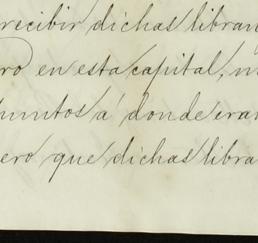 recibir dichas libran
ro en esta capital, n
puntos á donde eran
ero que dichas libra